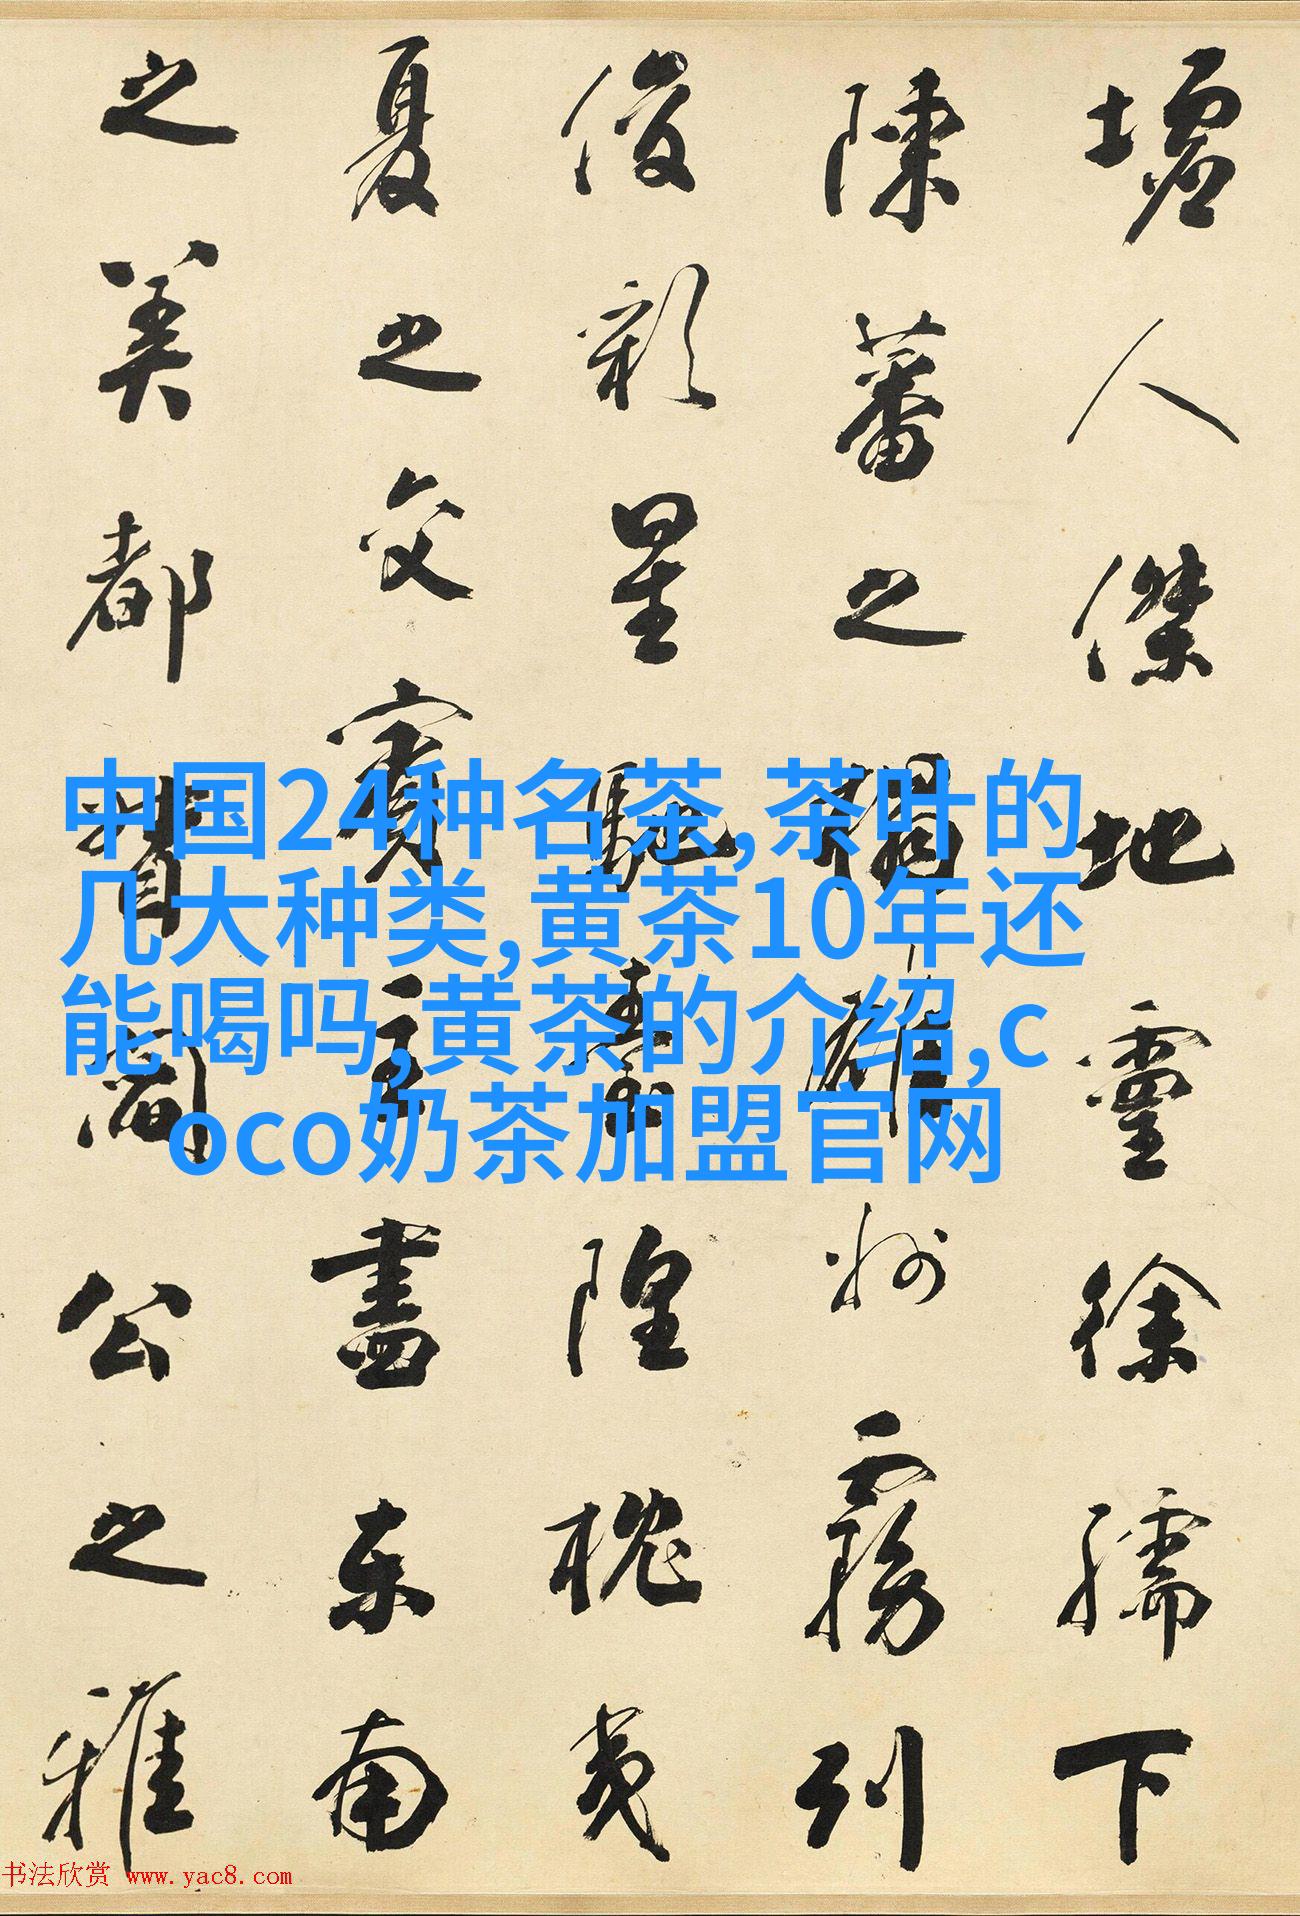 墟人傑地靈徐孺下
陳蕃之榻雄州霧列
俊彩星馳臺隍枕夷
夏之交賓主盡東南
之美都督閻公之雅
中国24种名茶,茶叶的
几大种类,黄茶10年还
能喝吗,黄茶的介绍,c
oco奶茶加盟官网
书法欣赏 www.yac8.com